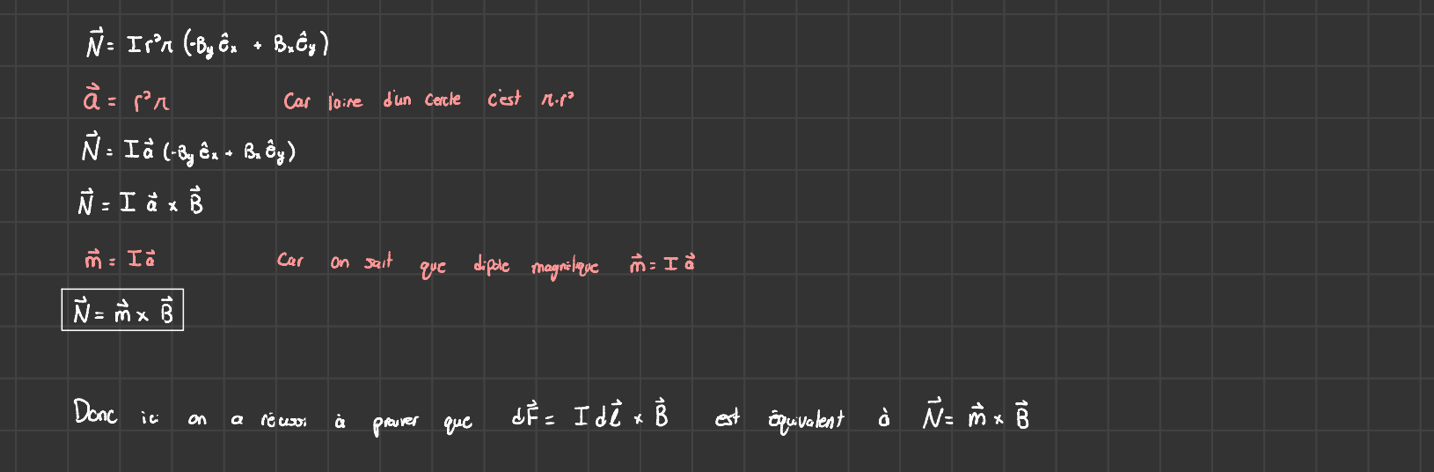 N⃗ = I r²π (-By êx + Bx êy)
a⃗ = r²π Car l'aire d'un cercle c'est π·r²
N⃗ = I a⃗ (-By êx + Bx êy)
N⃗ = I a⃗ × B⃗
m⃗ = I a⃗ Car on sait que dipole magnétique m⃗ = I a⃗
N⃗ = m⃗ × B⃗
Donc ici on a réussi à prouver que dF⃗ = I dl⃗ × B⃗ est équivalent à N⃗ = m⃗ × B⃗